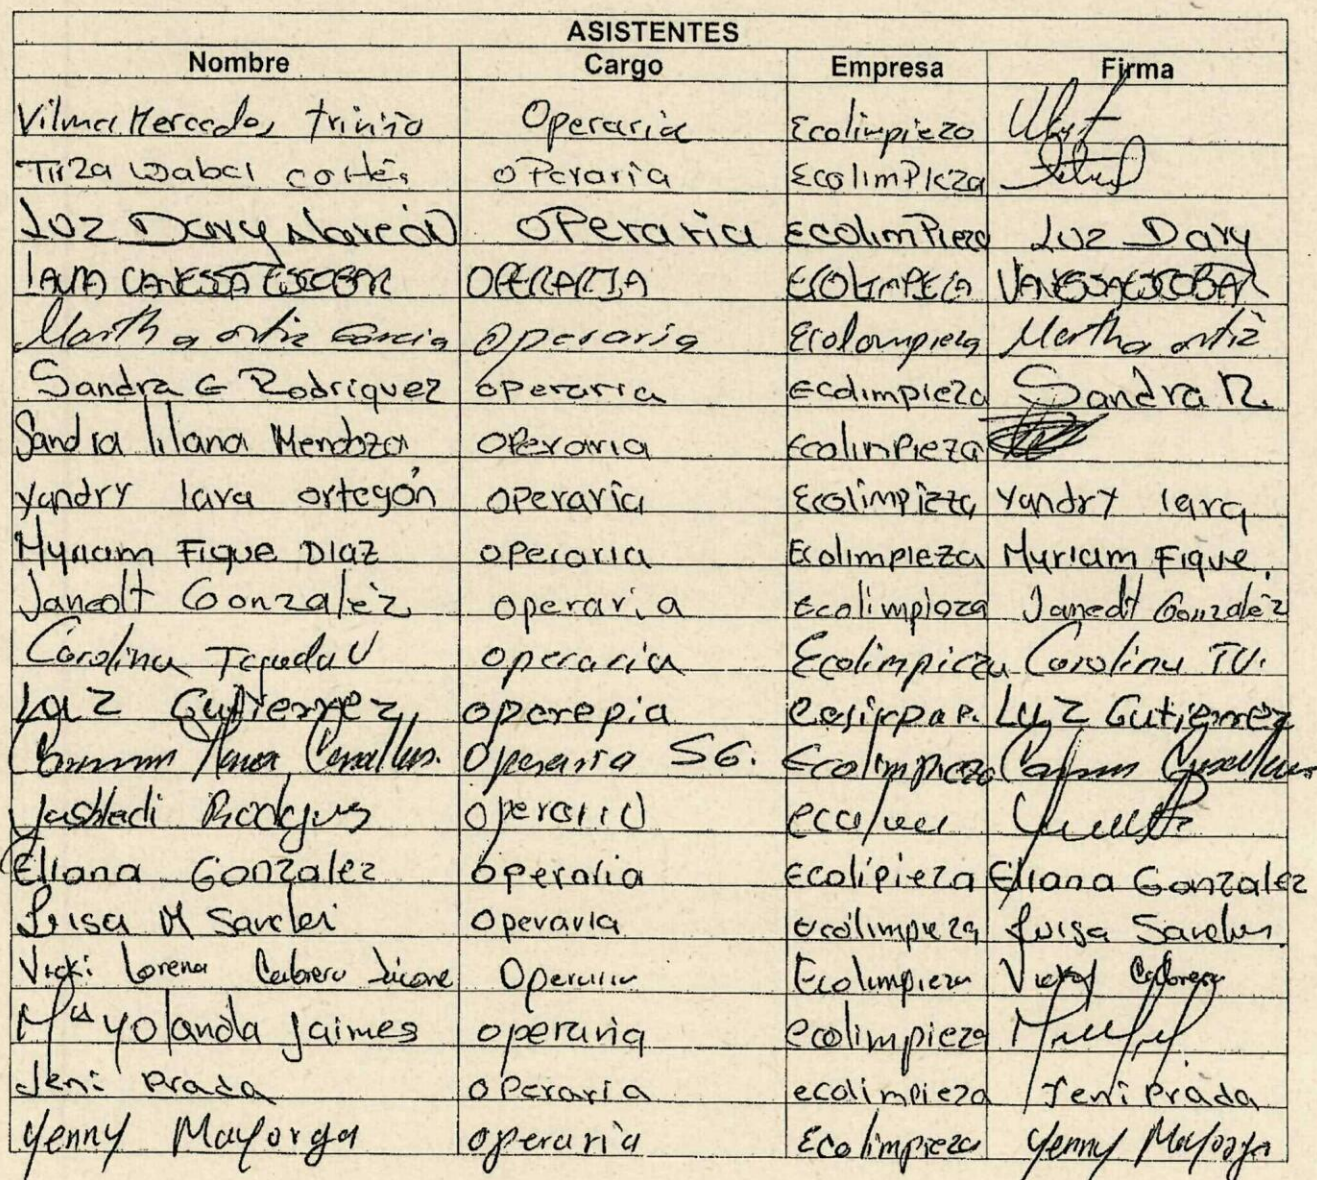 ASISTENTES
Nombre Cargo Empresa Firma
Vilma Mercedes triviño Operaria Ecolimpieza
Tirza Isabel cortés oPeraria EcolimPieza
Luz Dary Alarcón oPeraria EcolimPieza Luz Dary
LAURA VANESSA ESCOBAR OPERARIA ECOLIMPIEZA VANESSA ESCOBAR
Martha ortiz Garcia operaria Ecolompieza Martha ortiz
Sandra G Rodriguez operaria ecolimpieza Sandra R.
Sandra liliana Mendoza oPeraria EcolimPieza
yandry lara ortegón operaria Ecolimpieza yandry lara
Myriam Fique Diaz operaria Ecolimpieza Myriam Fique.
Janedt Gonzalez operaria Ecolimpioza Janedt Gonzalez
Carolina Tejada V operaria Ecolimpieza Carolina TV.
Luz Gutierrez operepia Luz Gutierrez
Operaria SG. Ecolimpieza
operario
Eliana Gonzalez operaria Ecolipieza Eliana Gonzalez
Luisa M operaria ecolimpieza Luisa
Vicki Lorena Cabrera Operaria Ecolimpieza Cabrera
Mª yolanda Jaimes operaria ecolimpieza
Jeni Prada oPeraria ecolimpieza Jeni Prada
yenny Mayorga operaria Ecolimpieza yenny Mayorga